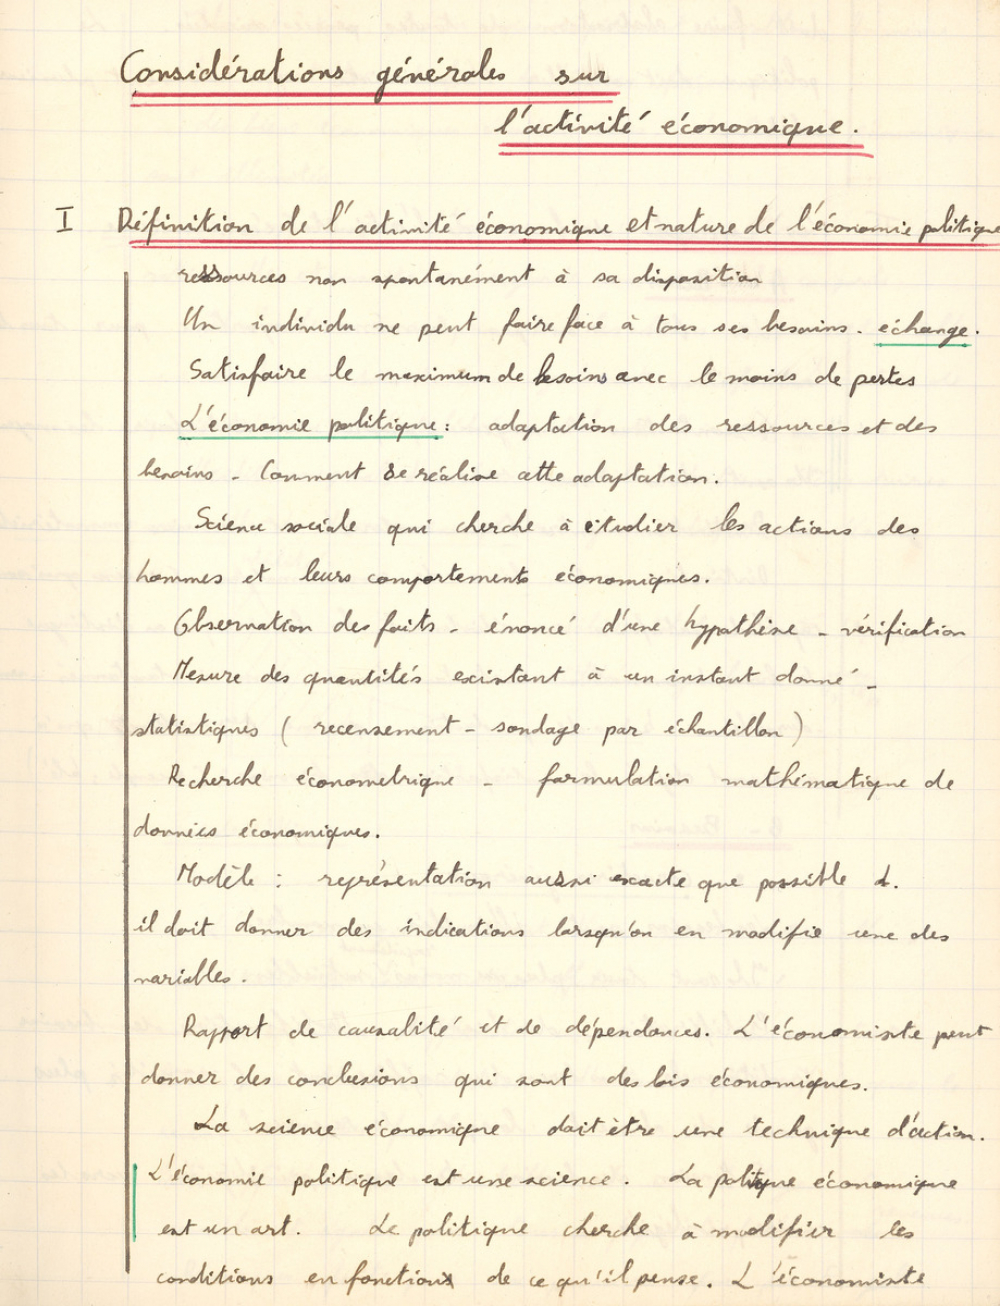 Considérations générales sur
l'activité économique.
I Définition de l'activité économique et nature de l'économie politique
ressources non spontanément à sa disposition
Un individu ne peut faire face à tous ses besoins - échange.
Satisfaire le maximum de besoins avec le moins de pertes
L'économie politique : adaptation des ressources et des
besoins - Comment se réalise cette adaptation.
Science sociale qui cherche à étudier les actions des
hommes et leurs comportements économiques.
Observation des faits - énoncé d'une hypothèse - vérification
Mesure des quantités existant à un instant donné -
statistiques ( recensement - sondage par échantillon )
Recherche économetrique - formulation mathématique de
données économiques.
Modèle : représentation aussi exacte que possible d.
il doit donner des indications lorsqu'on en modifie une des
variables.
Rapport de causalité et de dépendances. L'économiste peut
donner des conclusions qui sont des lois économiques.
La science économique doit être une technique d'action.
L'économie politique est une science. La politique économique
est un art. Le politique cherche à modifier les
conditions en fonction de ce qu'il pense. L'économiste